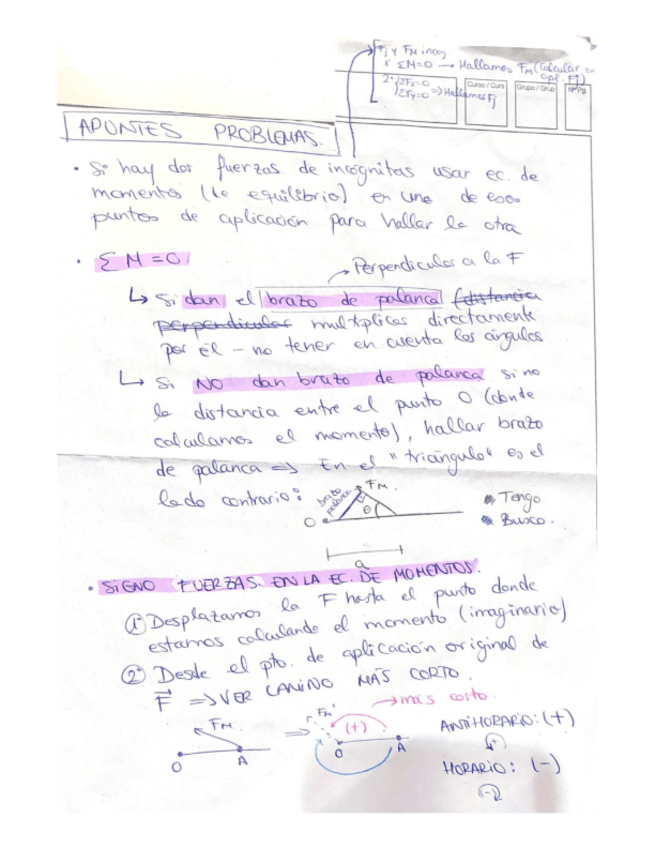 Fj y FM incog
1º ΣM=0 → Hallamos FM (Calcular en apl. Fj)
2º {ΣFx=0 ΣFy=0 => Hallamos Fj
Curso / Curs
Grupo / Grup
Nº Pg.
APUNTES PROBLEMAS.
· Si hay dos fuerzas de incógnitas usar ec. de
momentos (de equilibrio) en uno de esos
puntos de aplicación para hallar la otra
· ΣM=0
→ Perpendicular a la F
↳ Si dan el brazo de palanca (distancia
perpendicular multiplicas directamente
por él – no tener en cuenta los ángulos
↳ Si NO dan brazo de palanca si no
la distancia entre el punto O (donde
calculamos el momento), hallar brazo
de palanca => En el "triángulo" es el
lado contrario:
brazo
palanca
FM.
θ
O
a
Tengo
Busco.
· SIGNO FUERZAS EN LA EC. DE MOMENTOS.
① Desplazamos la F hasta el punto donde
estamos calculando el momento (imaginario)
② Desde el pto. de aplicación original de
F => VER CAMINO MÁS CORTO.
→ más corto.
FM
O
A
=>
FM'
(+)
O
A
ANTIHORARIO: (+)
HORARIO: (-)